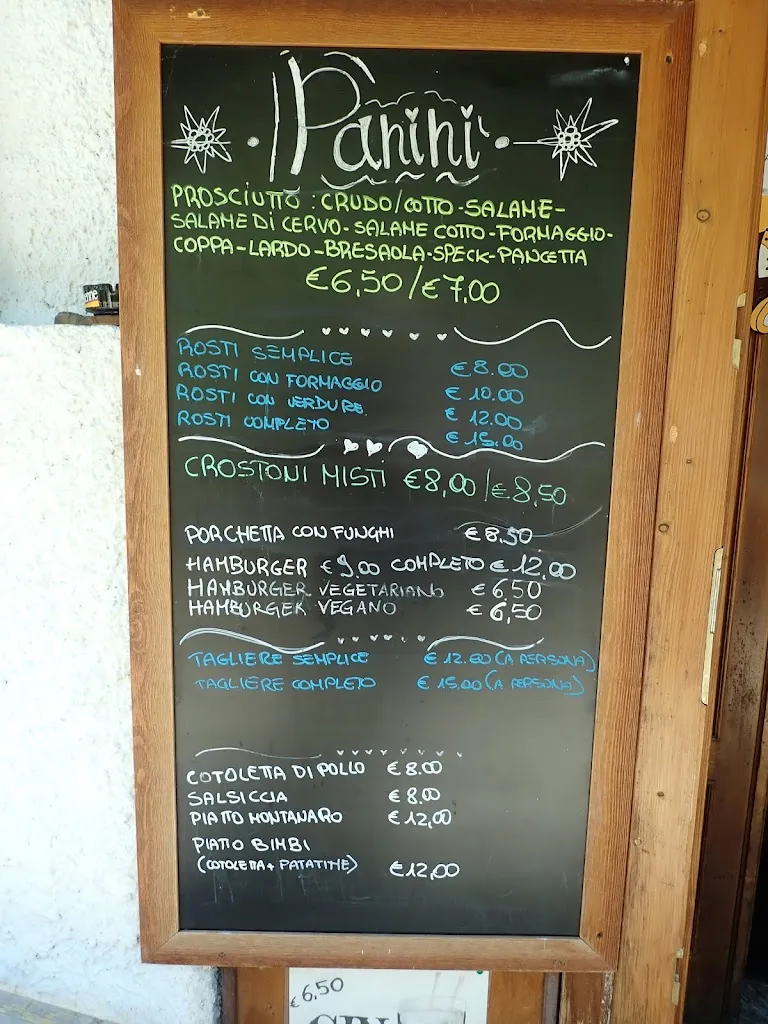 Panini
PROSCIUTTO : CRUDO/COTTO - SALAME -
SALAME DI CERVO - SALAME COTTO - FORMAGGIO -
COPPA - LARDO - BRESAOLA - SPECK - PANCETTA
€6,50 / €7,00
ROSTI SEMPLICE € 8.00
ROSTI CON FORMAGGIO € 10.00
ROSTI CON VERDURE € 12.00
ROSTI COMPLETO € 15.00
CROSTONI MISTI €8,00 / €8,50
PORCHETTA CON FUNGHI € 8.50
HAMBURGER € 9.00 COMPLETO € 12,00
HAMBURGER VEGETARIANO € 6,50
HAMBURGER VEGANO € 6,50
TAGLIERE SEMPLICE € 12.00 (A PERSONA)
TAGLIERE COMPLETO € 15.00 (A PERSONA)
COTOLETTA DI POLLO € 8.00
SALSICCIA € 8,00
PIATTO MONTANARO € 12,00
PIATTO BIMBI
(COTOLETTA + PATATINE) € 12,00
€6,50
GIN